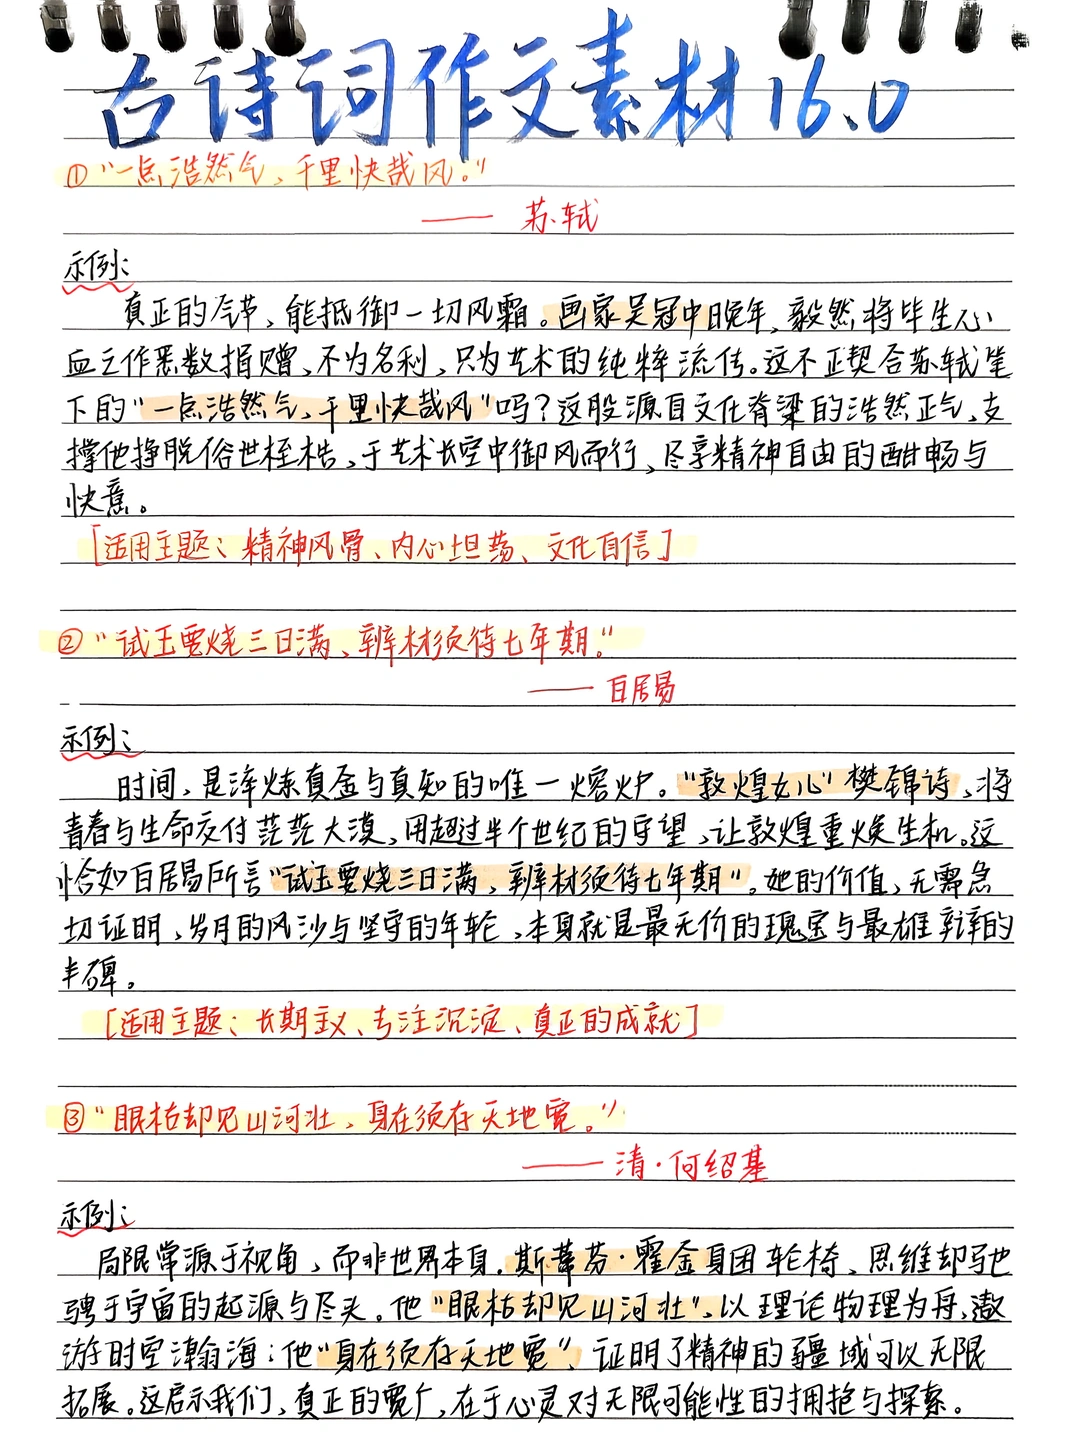 古诗词作文素材16.0
①“一点浩然气，千里快哉风。”
—— 苏轼
示例：
真正的气节，能抵御一切风霜。画家吴冠中晚年，毅然将毕生心
血之作悉数捐赠，不为名利，只为艺术的纯粹流传。这不正契合苏轼笔
下的“一点浩然气，千里快哉风”吗？这股源自文化脊梁的浩然正气，支
撑他挣脱俗世桎梏，于艺术长空中御风而行，尽享精神自由的酣畅与
快意。
[适用主题：精神风骨、内心坦荡、文化自信]
②“试玉要烧三日满，辨材须待七年期。”
—— 白居易
示例：
时间，是淬炼真金与真知的唯一熔炉。“敦煌女儿”樊锦诗，将
青春与生命交付茫茫大漠，用超过半个世纪的守望，让敦煌重焕生机。这
恰如白居易所言“试玉要烧三日满，辨材须待七年期”。她的价值，无需急
切证明，岁月的风沙与坚守的年轮，本身就是最无价的瑰宝与最雄辩的
丰碑。
[适用主题：长期主义、专注沉淀、真正的成就]
③“眼枯却见山河壮，身在须存天地宽。”
——清·何绍基
示例：
局限常源于视角，而非世界本身。斯蒂芬·霍金身困轮椅，思维却驰
骋于宇宙的起源与尽头。他“眼枯却见山河壮”，以理论物理为舟，遨
游时空瀚海；他“身在须存天地宽”，证明了精神的疆域可以无限
拓展。这启示我们，真正的宽广，在于心灵对无限可能性的拥抱与探索。